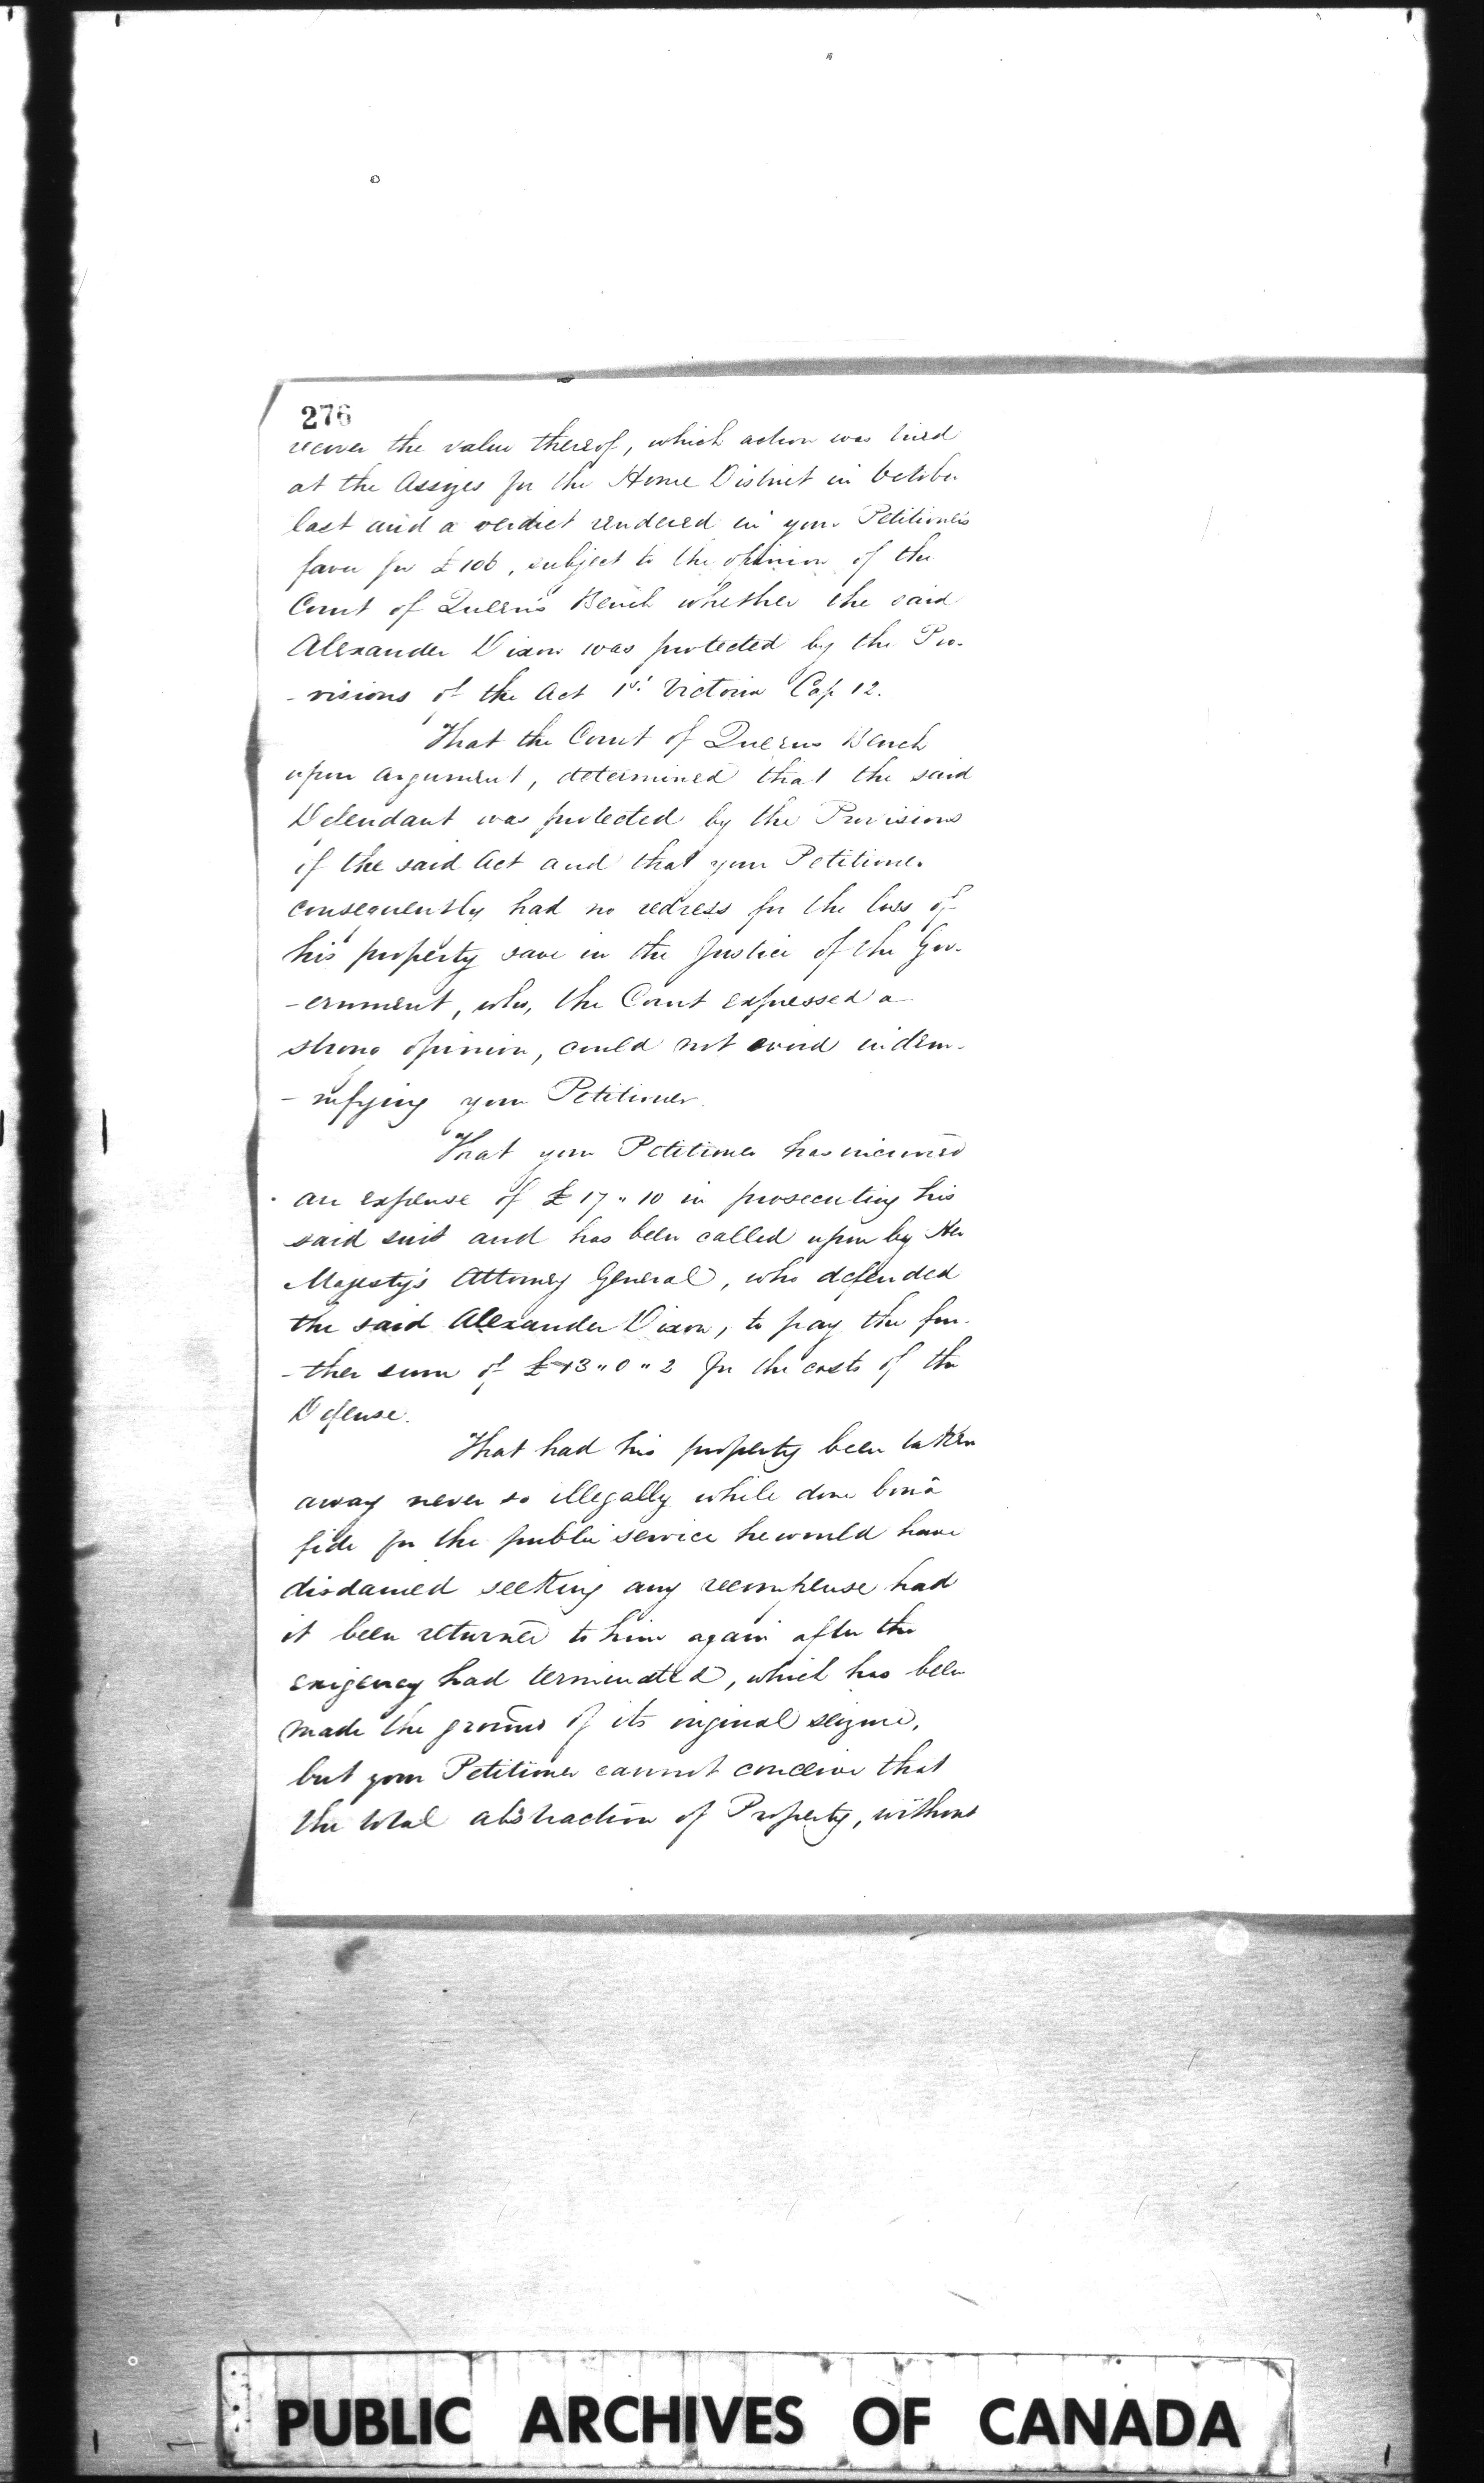 276
recover the value thereof, which action was tried
at the Assizes for the Home District in October
last and a verdict rendered in your Petitioner's
favor for £106, subject to the opinion of the
Court of Queen's Bench whether the said
Alexander Dixon was protected by the Pro-
-visions of the Act 1st Victoria Cap 12.
That the Court of Queens Bench
upon argument, determined that the said
Defendant was protected by the Provisions
of the said Act and that your Petitioner
consequently had no redress for the loss of
his property save in the Justice of the Gov-
-ernment, who, the Court expressed a
strong opinion, could not avoid indem-
-nifying your Petitioner.
That your Petitioner has incurred
an expense of £17"10 in prosecuting his
said suit and has been called upon by Her
Majesty's Attorney General, who defended
the said Alexander Dixon, to pay the fur-
-ther sum of "0"2 for the costs of the
Defense.
That had his property been taken
away never so illegally while done bonâ
fide for the public service he would have
disdained seeking any recompense had
it been returned to him again after the
exigency had terminated, which has been
made the ground of its original seizure,
but your Petitioner cannot conceive that
the total abstraction of Property, without
PUBLIC ARCHIVES OF CANADA